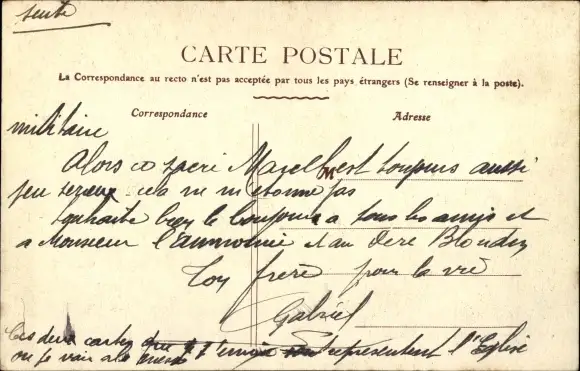 suite
CARTE POSTALE
La Correspondance au recto n'est pas acceptée par tous les pays étrangers (Se renseigner à la poste).
Correspondance
Adresse
militaire
Alors ce sacré Marcel est toujours aussi
peu sérieux cela ne m'étonne pas
Souhaite bien le bonjour a tous les amis et
a Monsieur l'aumonier et au Père Blondin
Ton frère pour la vie
Gabriel
Ces deux cartes que je t'envoie représentent l'Eglise
ou je vais a la messe